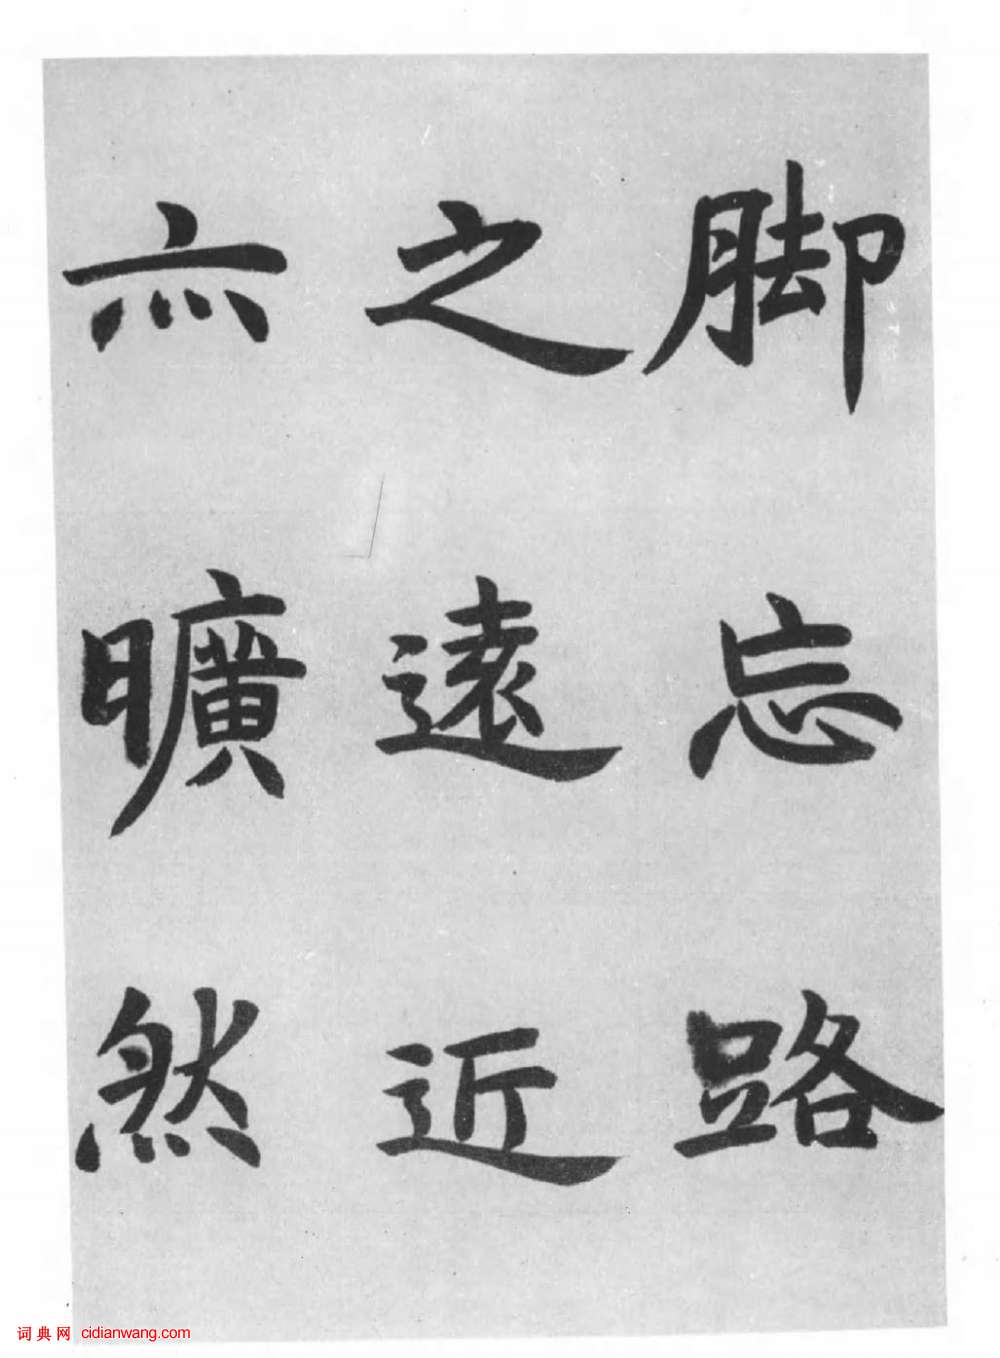 脚忘路
之遠近
亦曠然
词典网 cidianwang.com